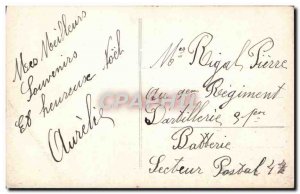 Mes Meilleurs
Souvenirs
Et heureuse Noël
Aurélie
Mes Rigal Pierre
au 9em Régiment
D'artillerie 2e pen
Batterie
Secteur Postal 42
CPARAMA